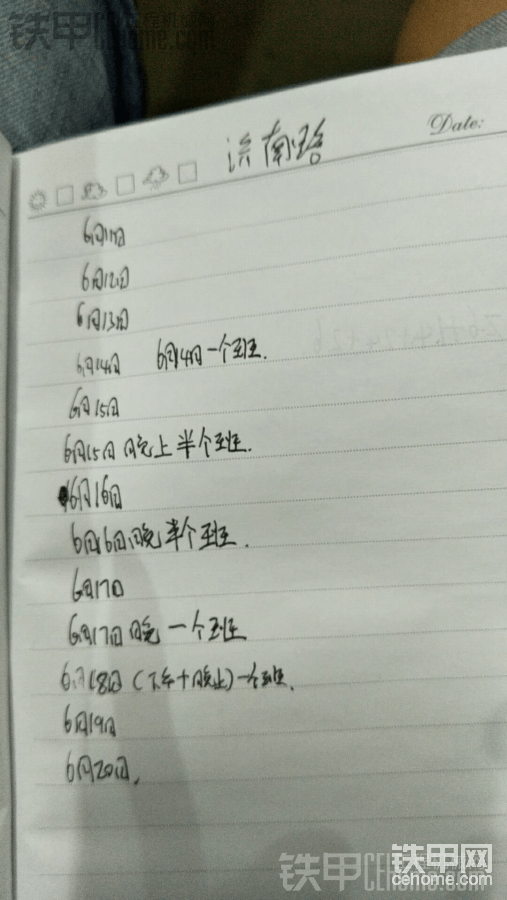 铁甲 cehome.com
Date:
济南路
6月11日
6月12日
6月13日
6月14日 6月14日一个班.
6月15日
6月15日晚上半个班.
6月16日
6月16日晚半个班.
6月17日
6月17日晚一个班
6月18日(下午+晚上)一个班.
6月19日
6月20日.
铁甲 CEhome.com
铁甲网
cehome.com